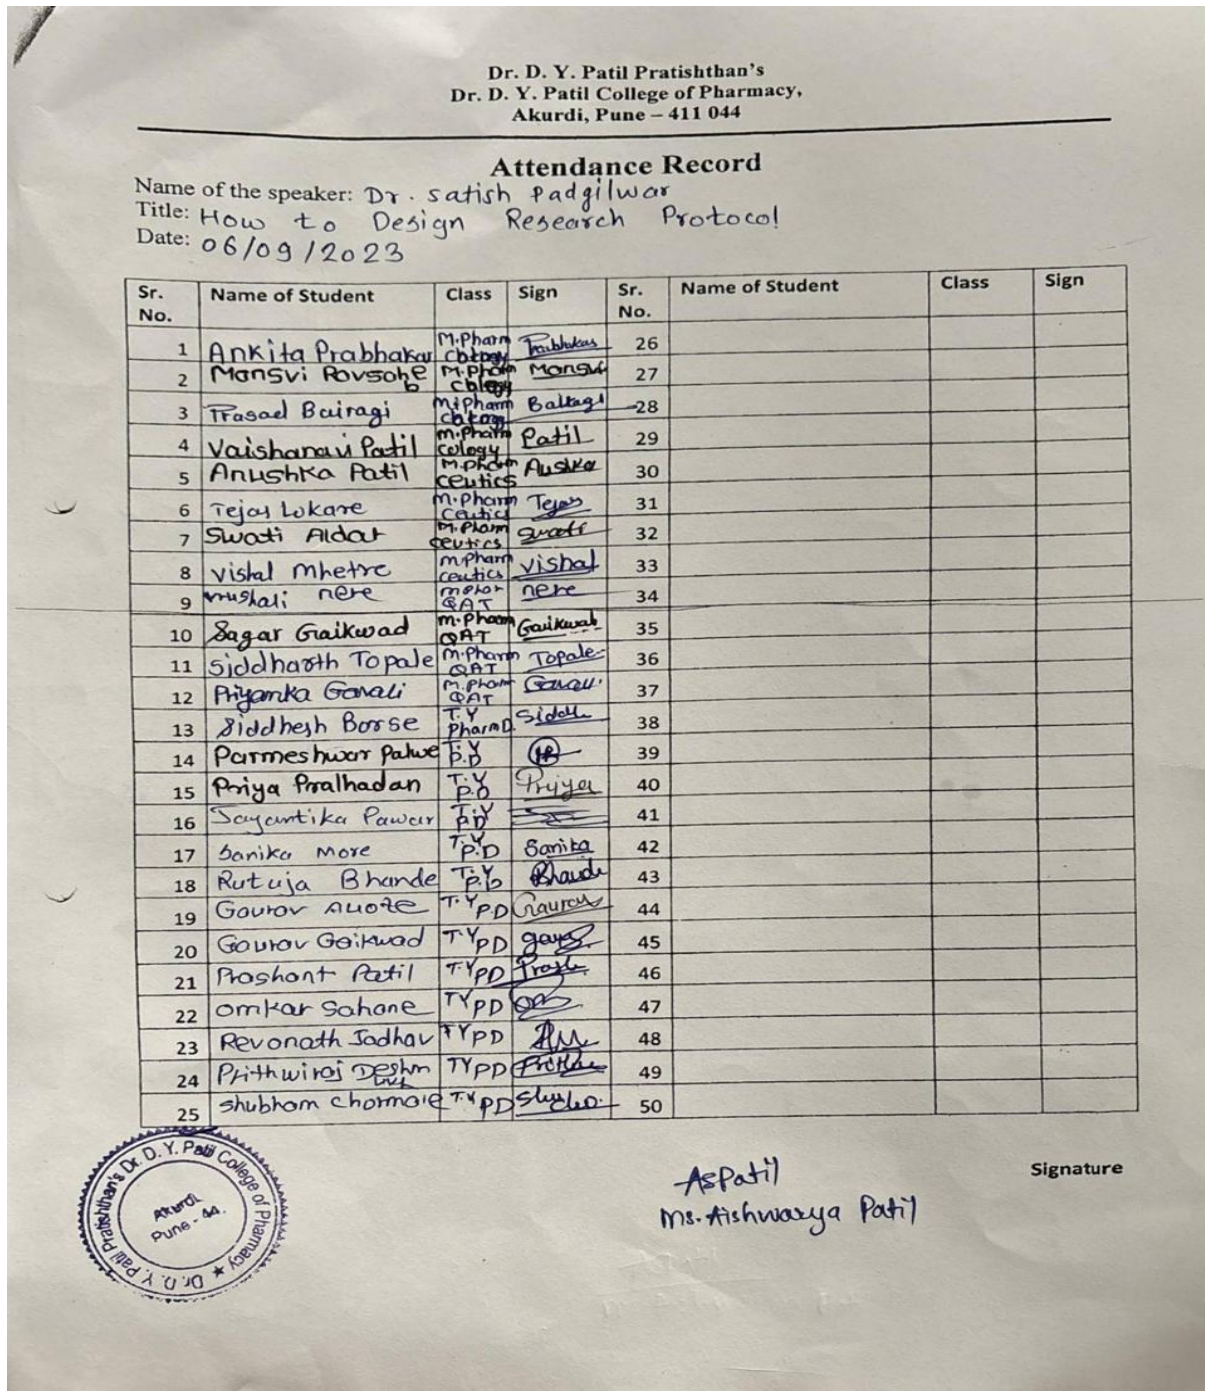 Dr. D. Y. Patil Pratishthan's
Dr. D. Y. Patil College of Pharmacy,
Akurdi, Pune – 411 044
Attendance Record
Name of the speaker: Dr. Satish Padgilwar
Title: How to Design Research Protocol
Date: 06/09/2023
Sr. No. Name of Student Class Sign Sr. No. Name of Student Class Sign
1 Ankita Prabhakar M.Pharm Prabhakar 26
2 M.Pharm 27
3 Prasad Bairagi M.Pharm 28
4 Vaishanavi Patil M.Pharm cology Patil 29
5 Anushka Patil M.Pharm ceutics 30
6 Tejas Lokare M.Pharm ceutics Tejas 31
7 Swati Aldar M.Pharm ceutics Swati 32
8 Vishal Mhetre M.Pharm ceutics Vishal 33
9 nere QAT nere 34
10 Sagar Gaikwad M.Pharm QAT 35
11 Siddharth Topale M.Pharm QAT Topale 36
12 Priyanka Gavali M.Pharm QAT 37
13 Siddhesh Borse T.Y PharmD. 38
14 Parmeshwar Palwe T.Y P.D 39
15 Priya Pralhadan T.Y P.D Priya 40
16 Jayantika Pawar T.Y P.D 41
17 Sanika More T.Y P.D Sanika 42
18 Rutuja Bhande T.Y P.D 43
19 Gourav T.Y P.D Gaurav 44
20 Gourav Gaikwad T.Y PD 45
21 Prashant Patil T.Y PD 46
22 Omkar Sahane TY PD 47
23 Revonath Jadhav TY PD 48
24 Prithwiraj TY PD 49
25 Shubham T.Y PD 50
Dr. D. Y. Patil Pratishthan's Dr. D. Y. Patil College of Pharmacy ★
Akurdi
Pune - 44.
ASPatil
Ms. Aishwarya Patil
Signature